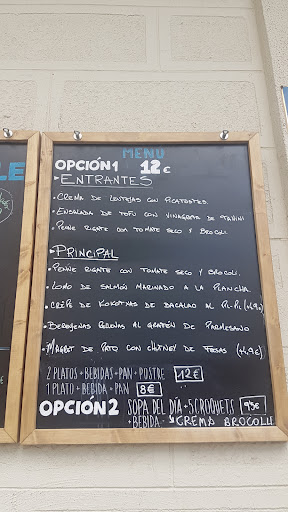 MENU
OPCIÓN1 12€
ENTRANTES
CREMA DE LENTEJAS CON PICATOSTES.
ENSALADA DE TOFU CON VINAGRETA DE TAHINI
PENNE RIGATE CON TOMATE SECO Y BROCOLI.
PRINCIPAL
PENNE RIGATE CON TOMATE SECO Y BROCOLI.
LOMO DE SALMÓN MARINADO A LA PLANCHA
CRÊPE DE KOKOTXAS DE BACALAO AL PIL-PIL
BERENJENAS RELLENAS AL GRATÉN DE PARMESANO
MAGRET DE PATO CON CHUTNEY DE FRESAS
2 PLATOS + BEBIDAS + PAN + POSTRE 12€
1 PLATO + BEBIDA + PAN 8€
OPCIÓN2 SOPA DEL DÍA + 5 CROQUETS
+ BEBIDA CREMA BROCOLI
LE